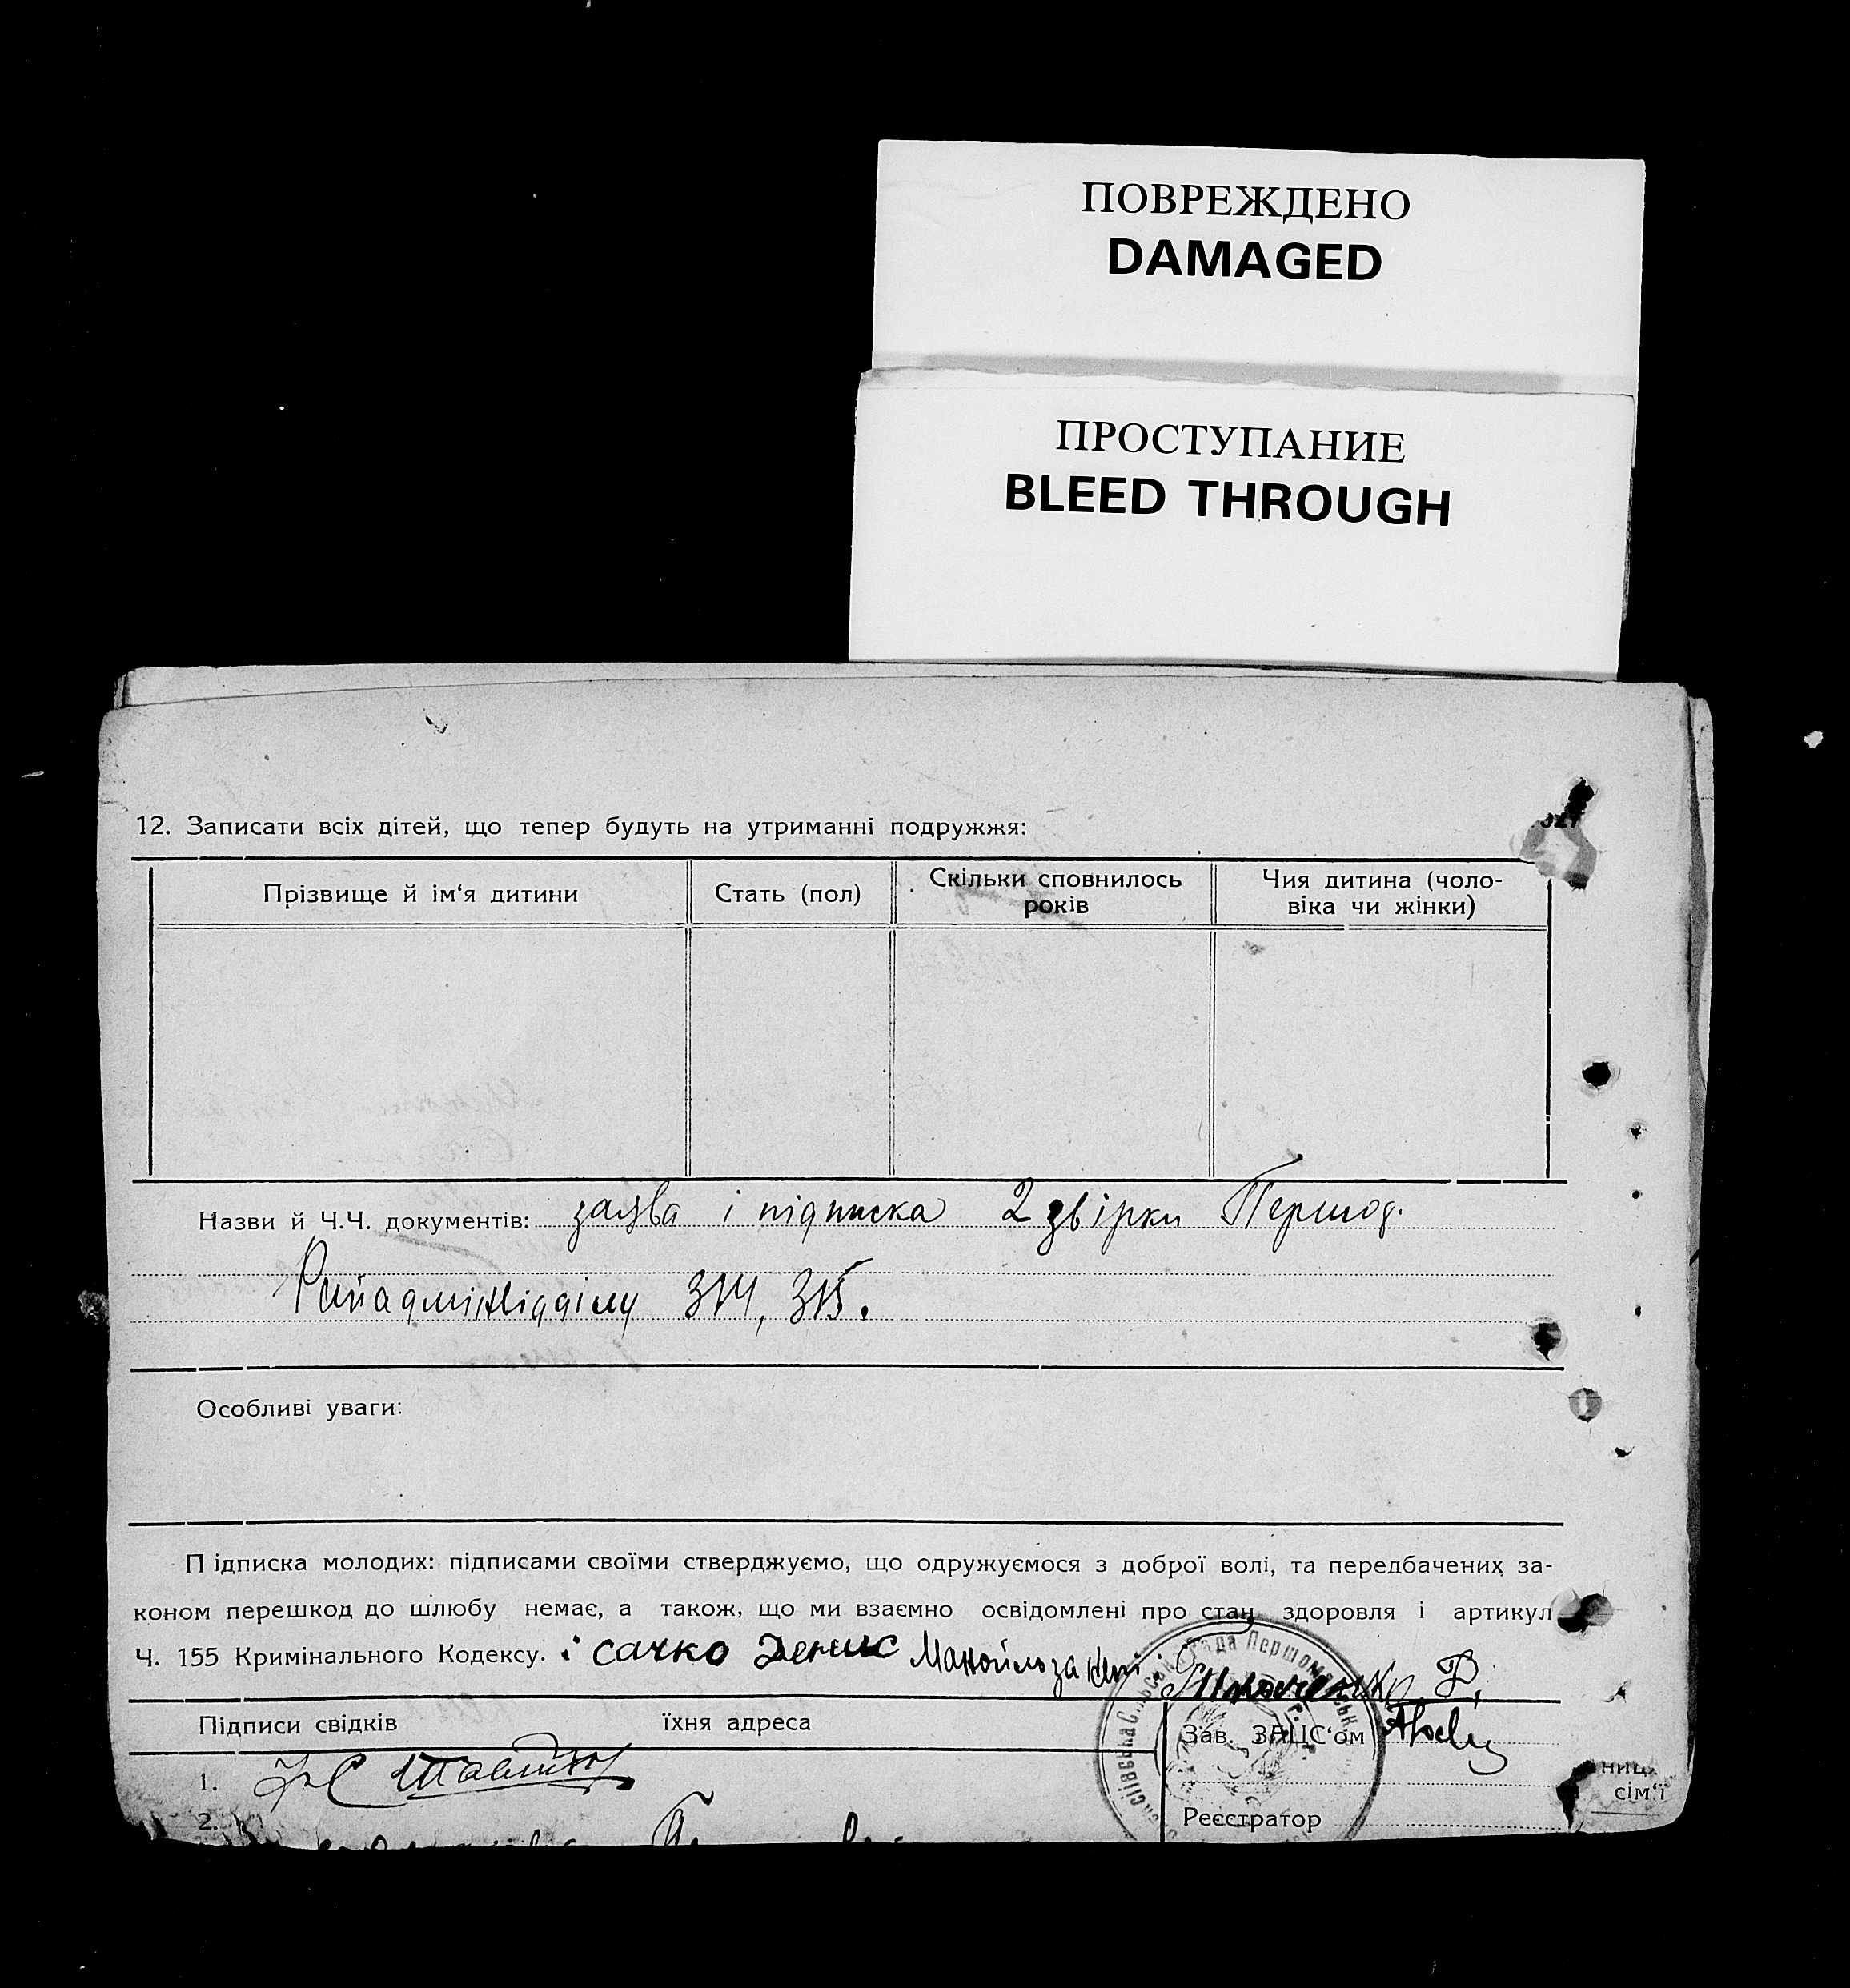 ПОВРЕЖДЕНО
DAMAGED
ПРОСТУПАНИЕ
BLEED THROUGH
12. Записати всіх дітей, що тепер будуть на утриманні подружжя:
Прізвище й ім‘я дитини
Стать (пол)
Скільки сповнилось
років
Чия дитина (чоло-
віка чи жінки)
Назви й Ч.Ч. документів: заява і підписка 2 звірки Першод.
Райадмінвідділу 314, 315.
Особливі уваги:
Підписка молодих: підписами своїми стверджуємо, що одружуємося з доброї волі, та передбачених за-
коном перешкод до шлюбу немає, а також, що ми взаємно освідомлені про стан здоровля і артикул
Ч. 155 Кримінального Кодексу. Сачко Денис
Підписи свідків
їхня адреса
Зав. ЗАЦС‘ом
1.
2.
Реєстратор
сім‘ї